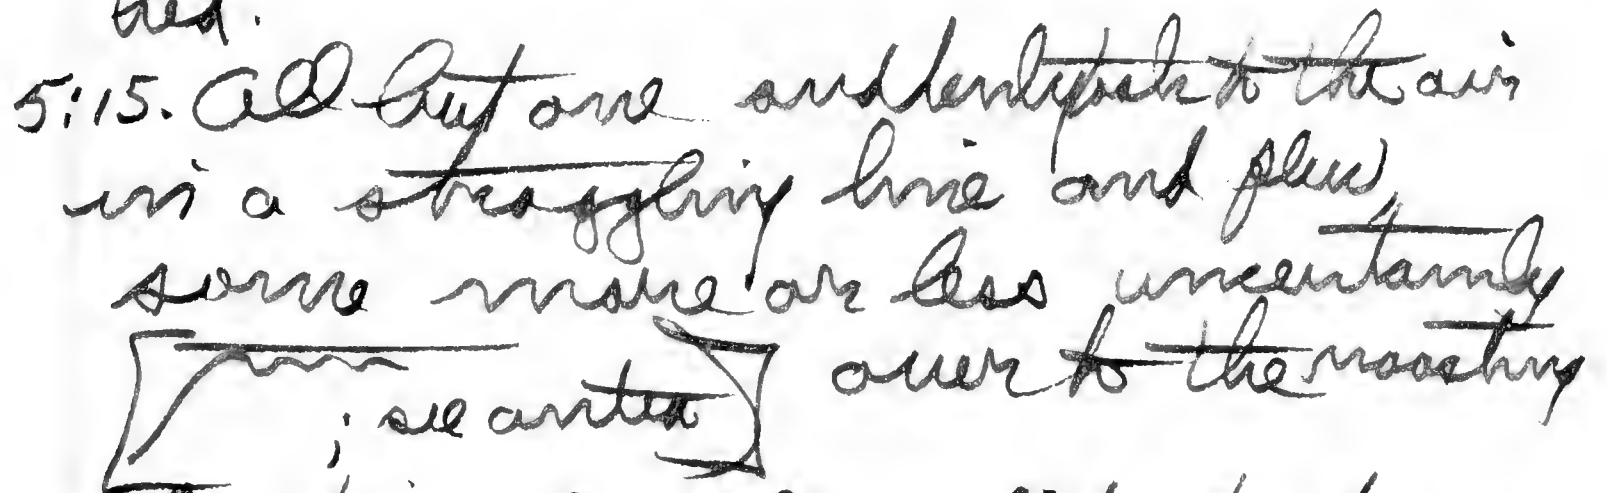 5:15. All but one suddenly took to the air
in a straggling line and flew,
some more or less uncertainly
[ ; see antea] over to the roosting